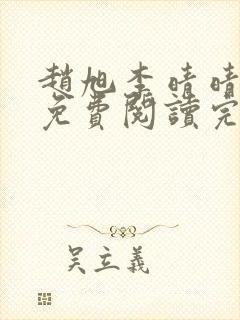 趙旭李晴晴
免費閱讀完
吴立義